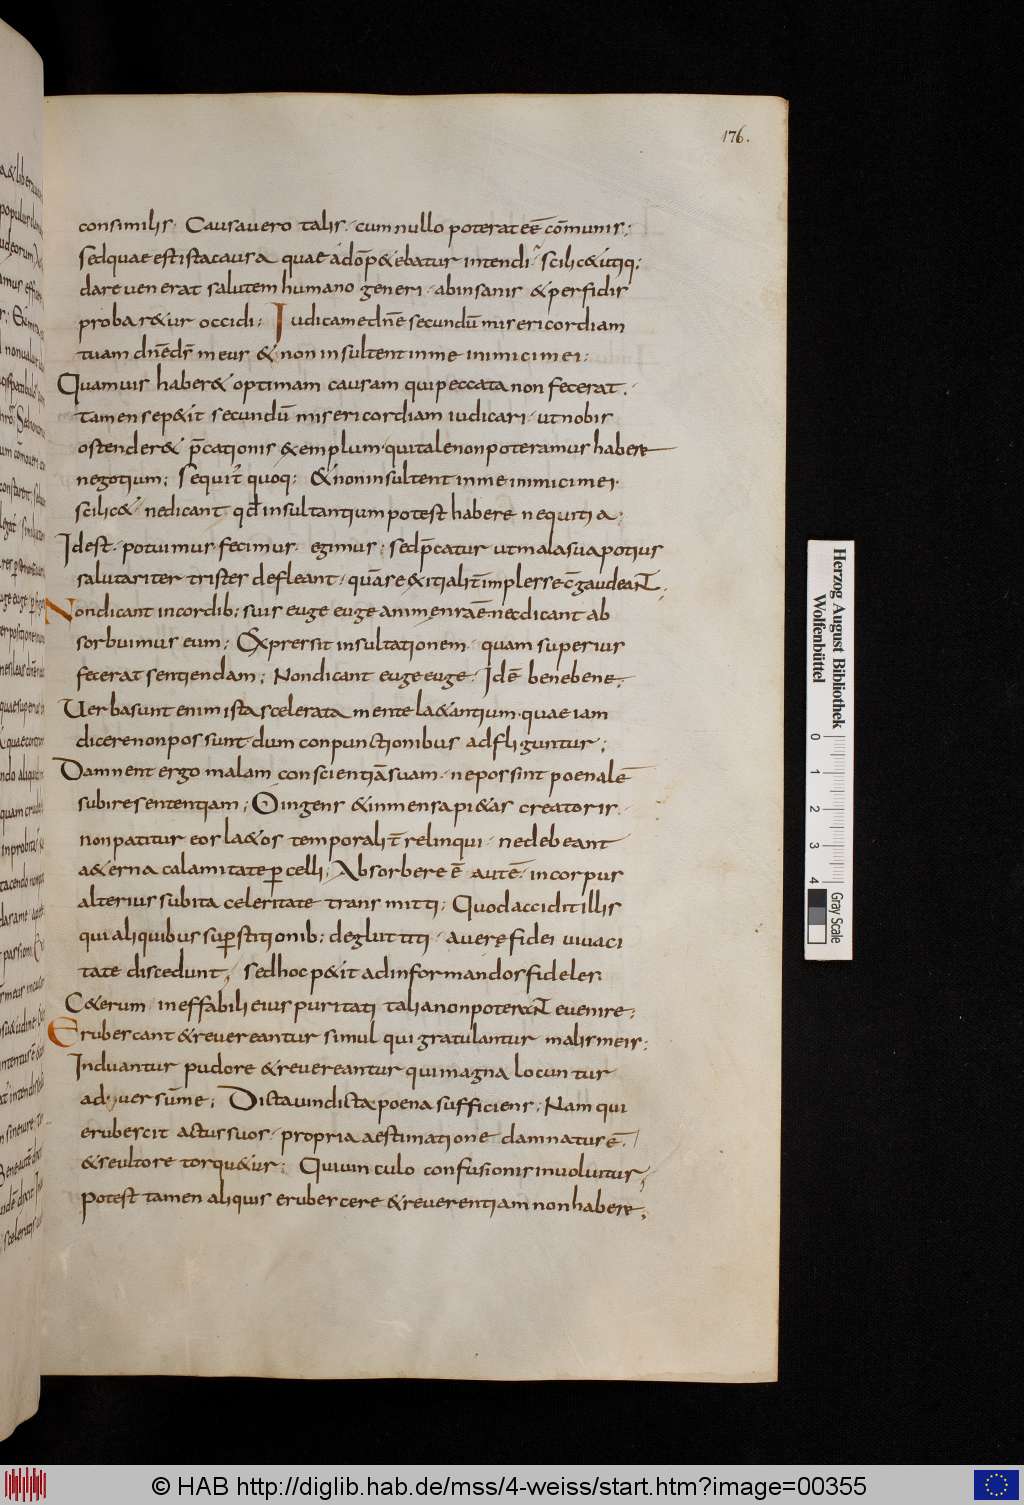 176.
consimilis· Causa uero talis· cum nullo poterat eē cōmunis;
sed quae est ista causa quae a dōo p&ebatur intendi· scilic& ut q;
dare uenerat salutem humano generi· ab insanis & perfidis
probar&ur occidi; Iudica me dn̄e secundū misericordiam
tuam dn̄e ds̄ meus & non insultent in me inimici mei;
Quamuis haber& optimam causam qui peccata non fecerat·
tamen sep&it secundū misericordiam iudicari· ut nobis
ostender& p̄cationis exemplum· qui tale non poteramus habere
negotium; Sequit̄ quoq; & non insultent in me inimici mei·
scilic& ne dicant qđ insultantium potest habere nequitia;
Id est· potuimus fecimus· egimus; sed p̄catur ut mala sua potius
salutariter tristes defleant· quā se exitialit̄ implesse c̄gaudeant;
Non dicant in cordib; suis euge euge animę nr̄ae nec dicant ab
sorbuimus eum; Expressit insultationem· quam superius
fecerat sentiendam; Non dicant euge euge· Id ē bene bene;
Uerba sunt enim ista scelerata mente la&antium· quae iam
dicere non possunt· dum conpunctionibus adfliguntur;
Damnent ergo malam conscientiā suam· ne possint poenalē
subire sententiam; O ingens & inmensa pi&as creatoris·
non patitur eos la&os temporalit̄ relinqui· ne debeant
a&erna calamitate p̄celli; Absorbere ē autē· in corpus
alterius subita celeritate transmitti; Quod accidit illis
qui aliquibus sup̄stitionib; deglutiti· a uerę fidei uiuaci
tate discedunt; sed hoc p&it ad informandos fideles
C&erum· ineffabili eius puritati talia non poterant euenire;
Erubescant & reuereantur simul qui gratulantur malis meis;
Induantur pudore & reuereantur qui magna locuntur
aduersū me; Dicta uindicta poena sufficiens; Nam qui
erubescit actus suos· propria aestimatione damnatus ē·
& se ultore torqu&ur; Qui uinculo confusionis inuoluitur;
potest tamen aliquis erubescere & reuerentiam non habere;
Herzog August Bibliothek
Wolfenbüttel
0 1 2 3 4
Gray Scale
© HAB http://diglib.hab.de/mss/4-weiss/start.htm?image=00355